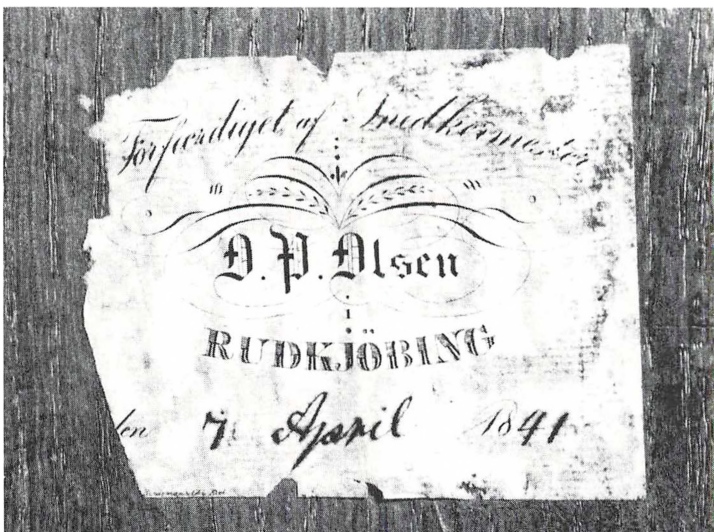 Forfærdiget af Snedkermester
O. P. Olsen
i
RUDKJÖBING
den 7 April 1841